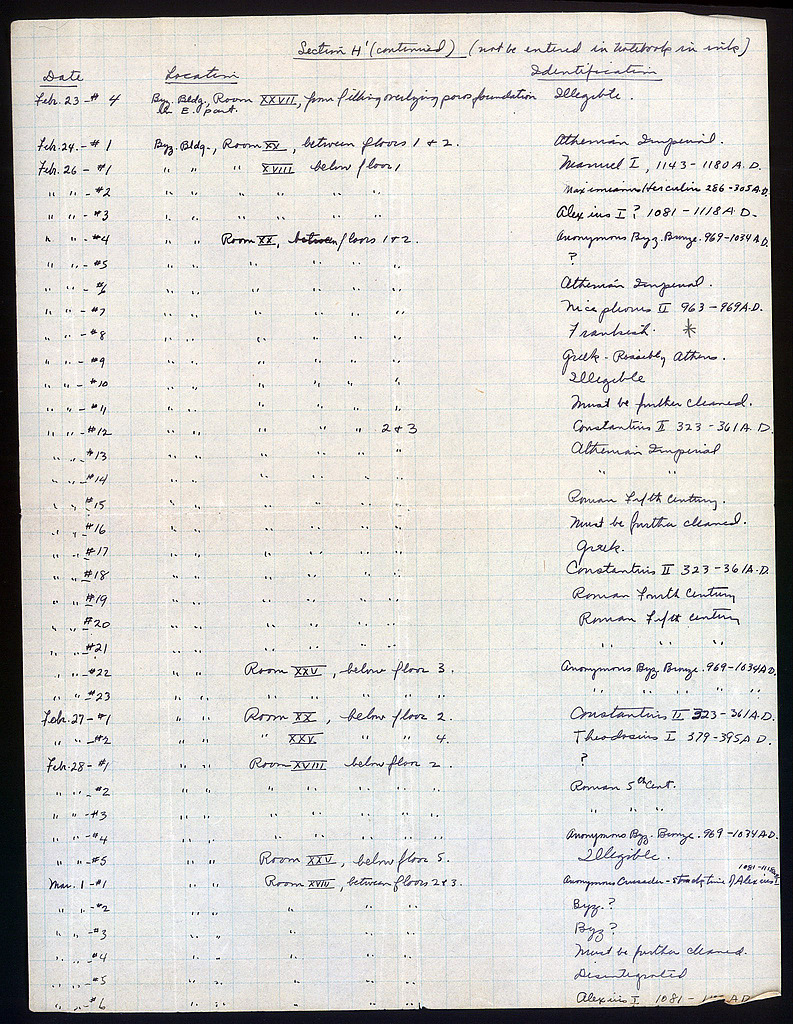 Section H' (continued) (not be entered in notebook in ink)
Date Location Identification
Feb. 23 - # 4 Byz. Bldg., Room XXVII, from filling overlying poros foundation Illegible.
in E. part.
Feb. 24. - # 1 Byz. Bldg., Room XX, between floors 1 & 2. Athenian Imperial.
Feb. 26 - #1 " " " XVIII below floor 1 Manuel I, 1143 - 1180 A.D.
" " - #2 " " " " " " Maximianus Herculius 286 - 305 A.D.
" " - #3 " " " " " " Alexius I? 1081 - 1118 A.D.
" " - #4 " " Room XX, between floors 1 & 2. Anonymous Byz. Bronze. 969-1034 A.D.
" " - #5 " " " " " " ?
" " - #6 " " " " " " Athenian Imperial.
" " - #7 " " " " " " Nicephorus II 963 - 969 A.D.
" " - #8 " " " " " " Frankish. *
" " - #9 " " " " " " Greek - Possibly Athens.
" " - #10 " " " " " " Illegible
" " - #11 " " " " " " Must be further cleaned.
" " - #12 " " " " " 2 & 3 Constantius II 323 - 361 A.D.
" " - #13 " " " " " " Athenian Imperial
" " - #14 " " " " " " " "
" " #15 " " " " " " Roman Fifth Century.
" " - #16 " " " " " " Must be further cleaned.
" " - #17 " " " " " " Greek.
" " - #18 " " " " " " Constantius II 323 - 361 A.D.
" " - #19 " " " " " " Roman Fourth Century
" " - #20 " " " " " " Roman Fifth Century
" " - #21 " " " " " " " " "
" " - #22 " " Room XXV, below floor 3. Anonymous Byz. Bronze. 969-1034 A.D.
" " - #23 " " " " " " " " " " " "
Feb. 27 - #1 " " Room XX, below floor 2. Constantius II 323 - 361 A.D.
" " - #2 " " " XXV " " 4. Theodosius I 379 - 395 A.D.
Feb. 28 - #1 " " Room XVIII below floor 2. ?
" " - #2 " " " " " " Roman 5th Cent.
" " - #3 " " " " " " " " "
" " - #4 " " " " " " Anonymous Byz. Bronze. 969 - 1034 A.D.
" " - #5 " " Room XXV, below floor 5. Illegible.
Mar. 1 - #1 " " Room XVIII, between floors 2 & 3. Anonymous Crusader - time of Alexius I 1081-1118
" " - #2 " " " " " Byz.?
" " - #3 " " " " " Byz?
" " - #4 " " " " " Must be further cleaned.
" " - #5 " " " " " Disintegrated
" " - #6 " " " " " Alexius I 1081 - A.D.